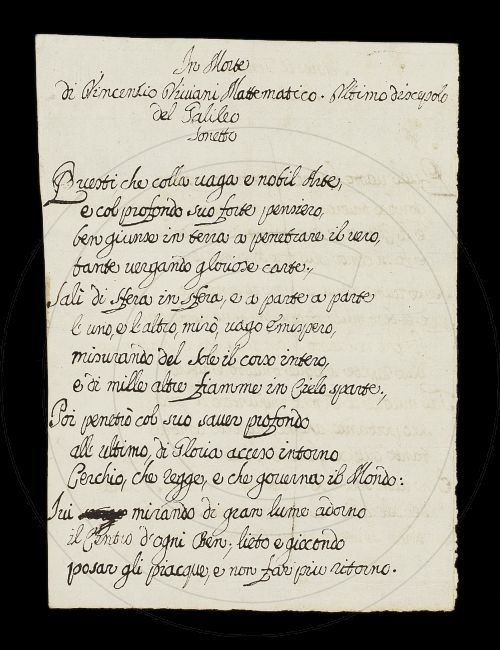 In Morte
di Vincentio Viviani Mattematico. Ultimo discepolo
del Galileo
Sonetto
Questi che colla vaga e nobil Arte,
e col profondo suo forte pensiero,
ben giunse in terra a penetrare il vero,
tante vergando gloriose carte,
Salì di sfera in sfera, e a parte a parte
l'uno, e l'altro, mirò, vago Emispero,
misurando del Sole il corso intero,
e di mille altre fiamme in Cielo sparte,
Poi penetrò col suo saver profondo
all'ultimo, di Gloria acceso intorno
Cerchio, che regge, e che governa il Mondo:
Ivi mirando di gran lume adorno
il Centro d'ogni Ben, lieto e giocondo
posar gli piacque, e non far più ritorno.